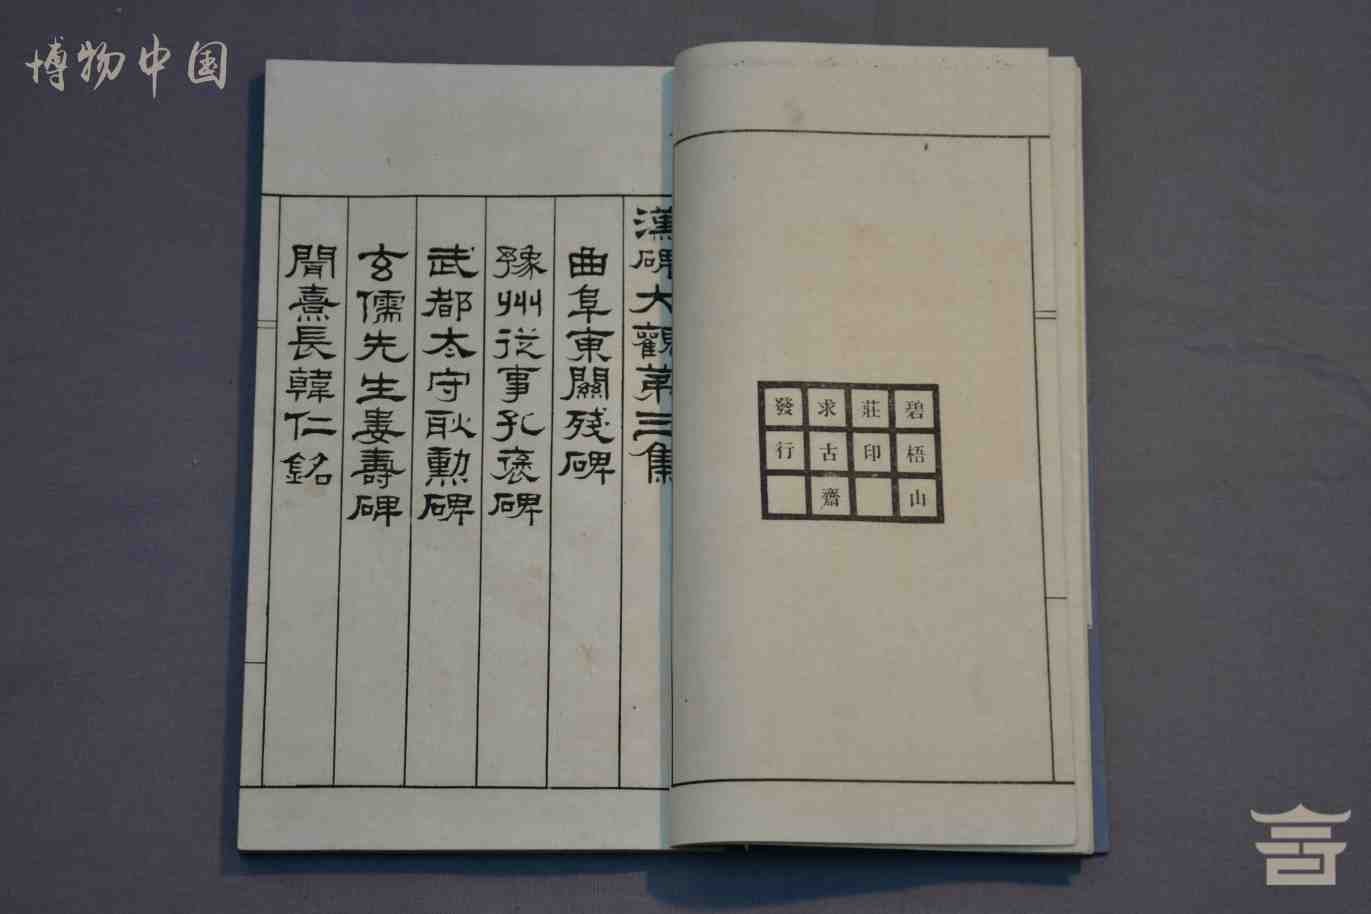 博物中国
碧梧山
莊印
求古齋
發行
漢碑大觀第三集
曲阜東關殘碑
豫州從事孔褎碑
武都太守耿勳碑
玄儒先生婁壽碑
聞熹長韓仁銘